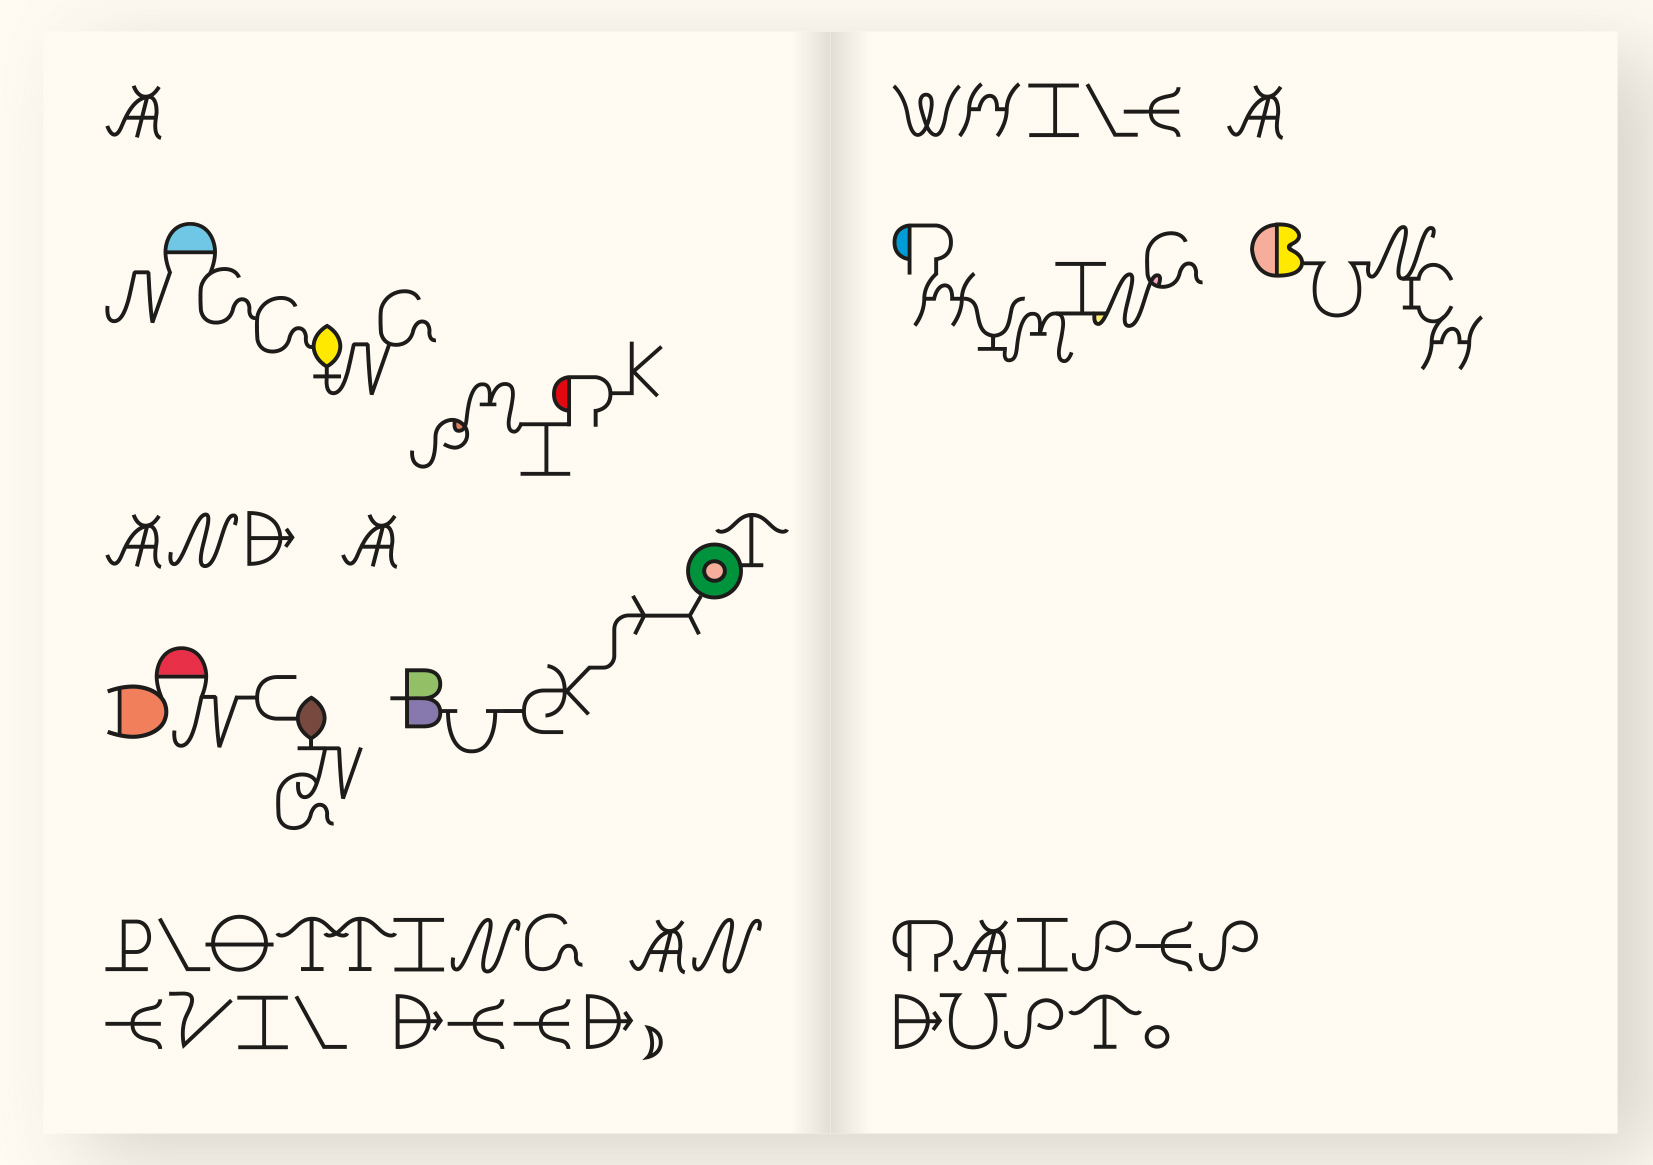 A
NAGGING SMIRK
AND A
DANCING BUCKSHOT
PLOTTING AN
EVIL DEED,
WHILE A
RHYMING BUNCH
RAISES
DUST.